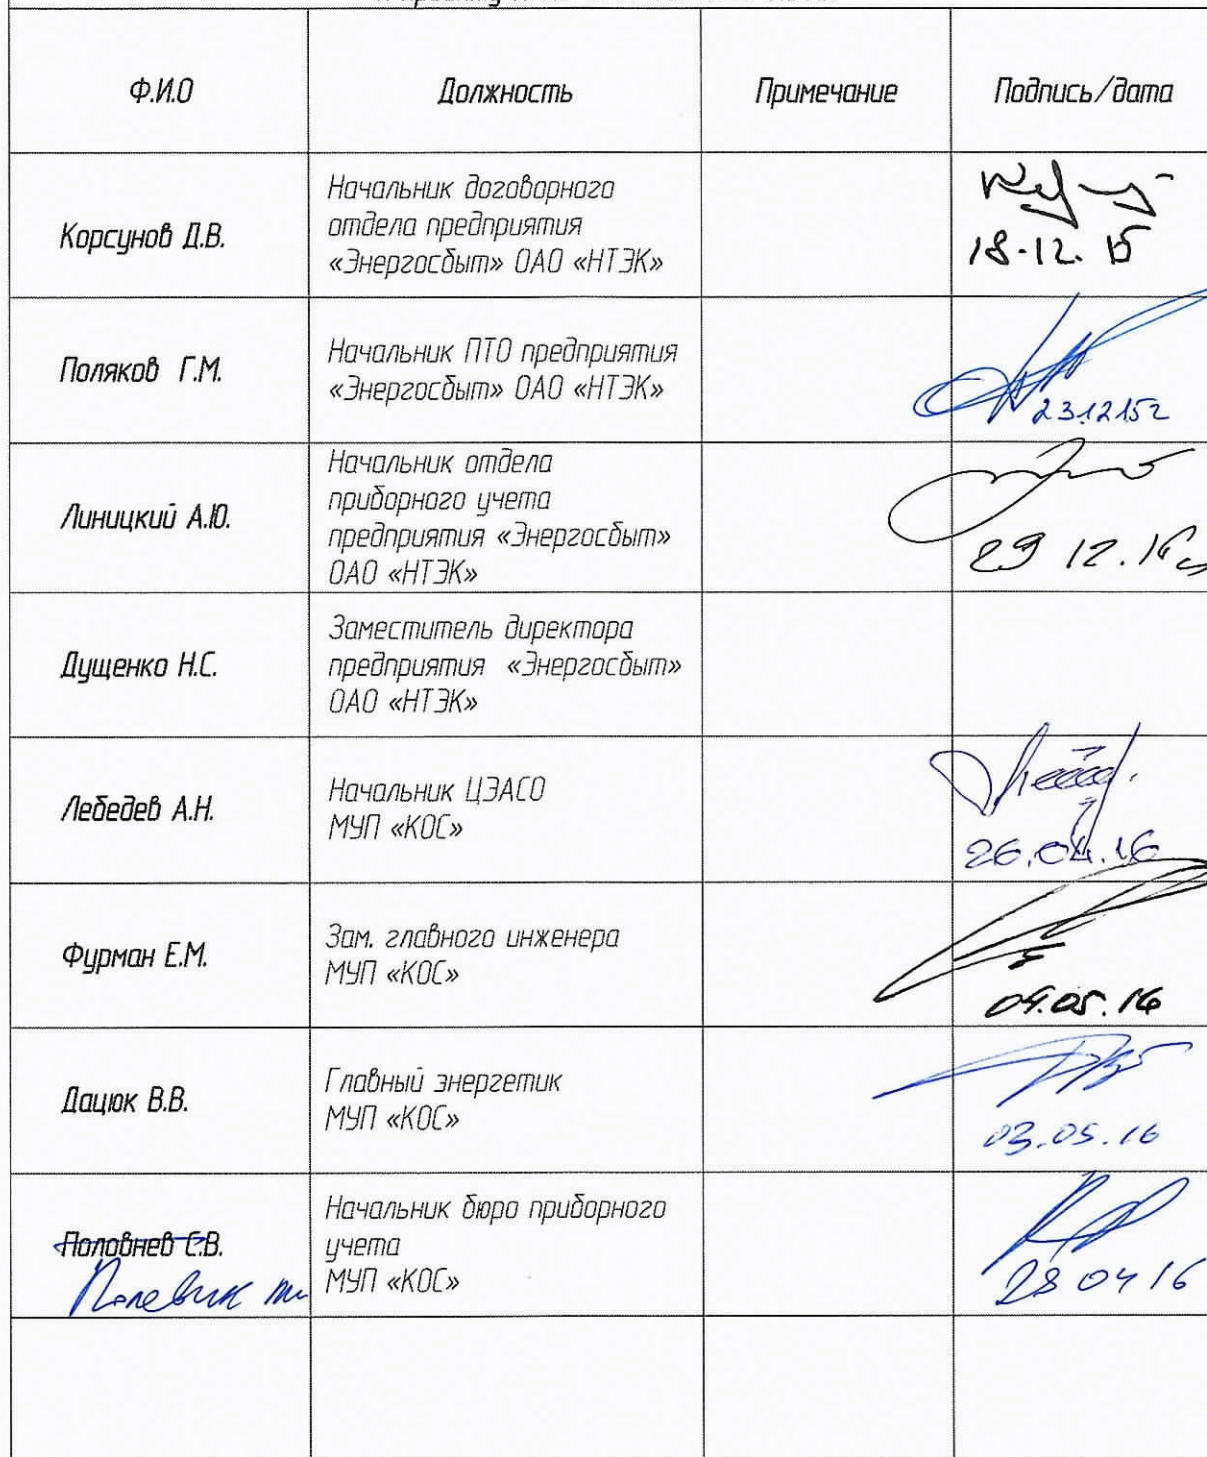 Ф.И.О Должность Примечание Подпись/дата
Корсунов Д.В.
Начальник договорного
отдела предприятия
«Энергосбыт» ОАО «НТЭК»
18.12.15
Поляков Г.М.
Начальник ПТО предприятия
«Энергосбыт» ОАО «НТЭК»
23.12.15г
Линицкий А.Ю.
Начальник отдела
приборного учета
предприятия «Энергосбыт»
ОАО «НТЭК»
29 12.
Дущенко Н.С.
Заместитель директора
предприятия «Энергосбыт»
ОАО «НТЭК»
Лебедев А.Н.
Начальник ЦЭАСО
МУП «КОС»
26.04.16
Фурман Е.М.
Зам. главного инженера
МУП «КОС»
05.16
Дацюк В.В.
Главный энергетик
МУП «КОС»
03.05.16
Половнев С.В.
Начальник бюро приборного
учета
МУП «КОС»
28 04 16